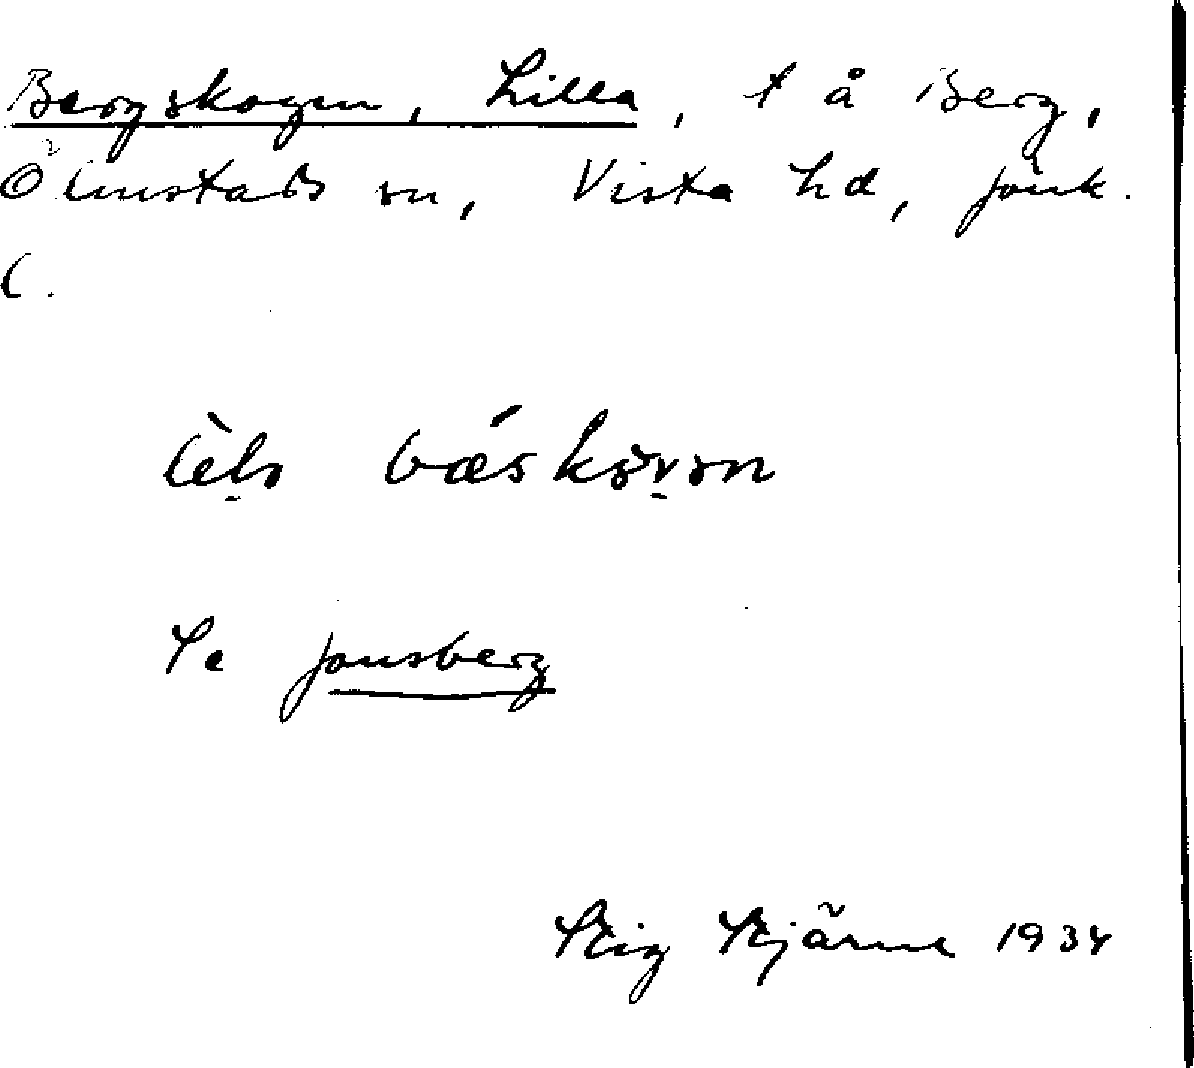 Bergskogen, Lilla, t å Berg,
Ölmstads sn, Vista hd, Jönk.
l.
Se Jonsberg
Stig Stjärne 1934